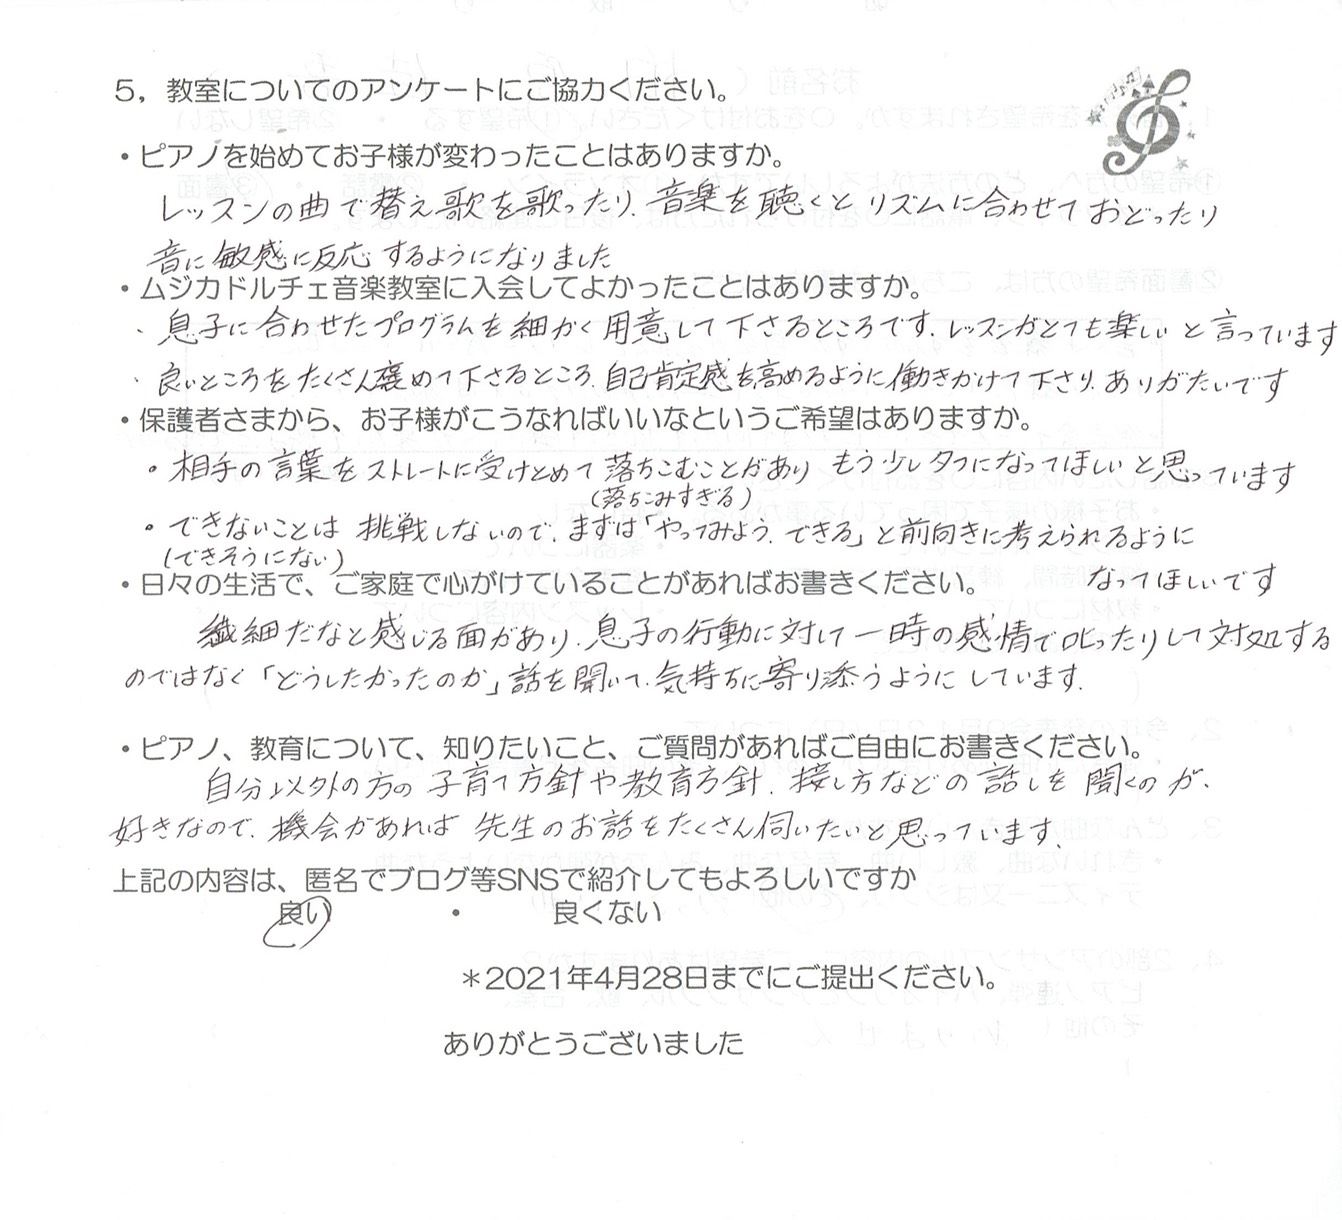 5，教室についてのアンケートにご協力ください。
・ピアノを始めてお子様が変わったことはありますか。
レッスンの曲で替え歌を歌ったり、音楽を聴くとリズムに合わせておどったり
音に敏感に反応するようになりました
・ムジカドルチェ音楽教室に入会してよかったことはありますか。
・息子に合わせたプログラムを細かく用意して下さるところです。レッスンがとても楽しいと言っています
・良いところをたくさん褒めて下さるところ、自己肯定感を高めるように働きかけて下さり、ありがたいです
・保護者さまから、お子様がこうなればいいなというご希望はありますか。
・相手の言葉をストレートに受けとめて落ちこむことがあり もう少しタフになってほしいと思っています
(落ちこみすぎる)
・できないことは挑戦しないので、まずは「やってみよう、できる」と前向きに考えられるように
(できそうにない)
・日々の生活で、ご家庭で心がけていることがあればお書きください。
なってほしいです
繊細だなと感じる面があり、息子の行動に対して一時の感情で叱ったりして対処する
のではなく「どうしたかったのか」話を聞いて、気持ちに寄り添うようにしています。
・ピアノ、教育について、知りたいこと、ご質問があればご自由にお書きください。
自分以外の方の子育て方針や教育方針、接し方などの話しを聞くのが、
好きなので、機会があれば先生のお話をたくさん伺いたいと思っています。
上記の内容は、匿名でブログ等SNSで紹介してもよろしいですか
良い ・ 良くない
＊2021年4月28日までにご提出ください。
ありがとうございました